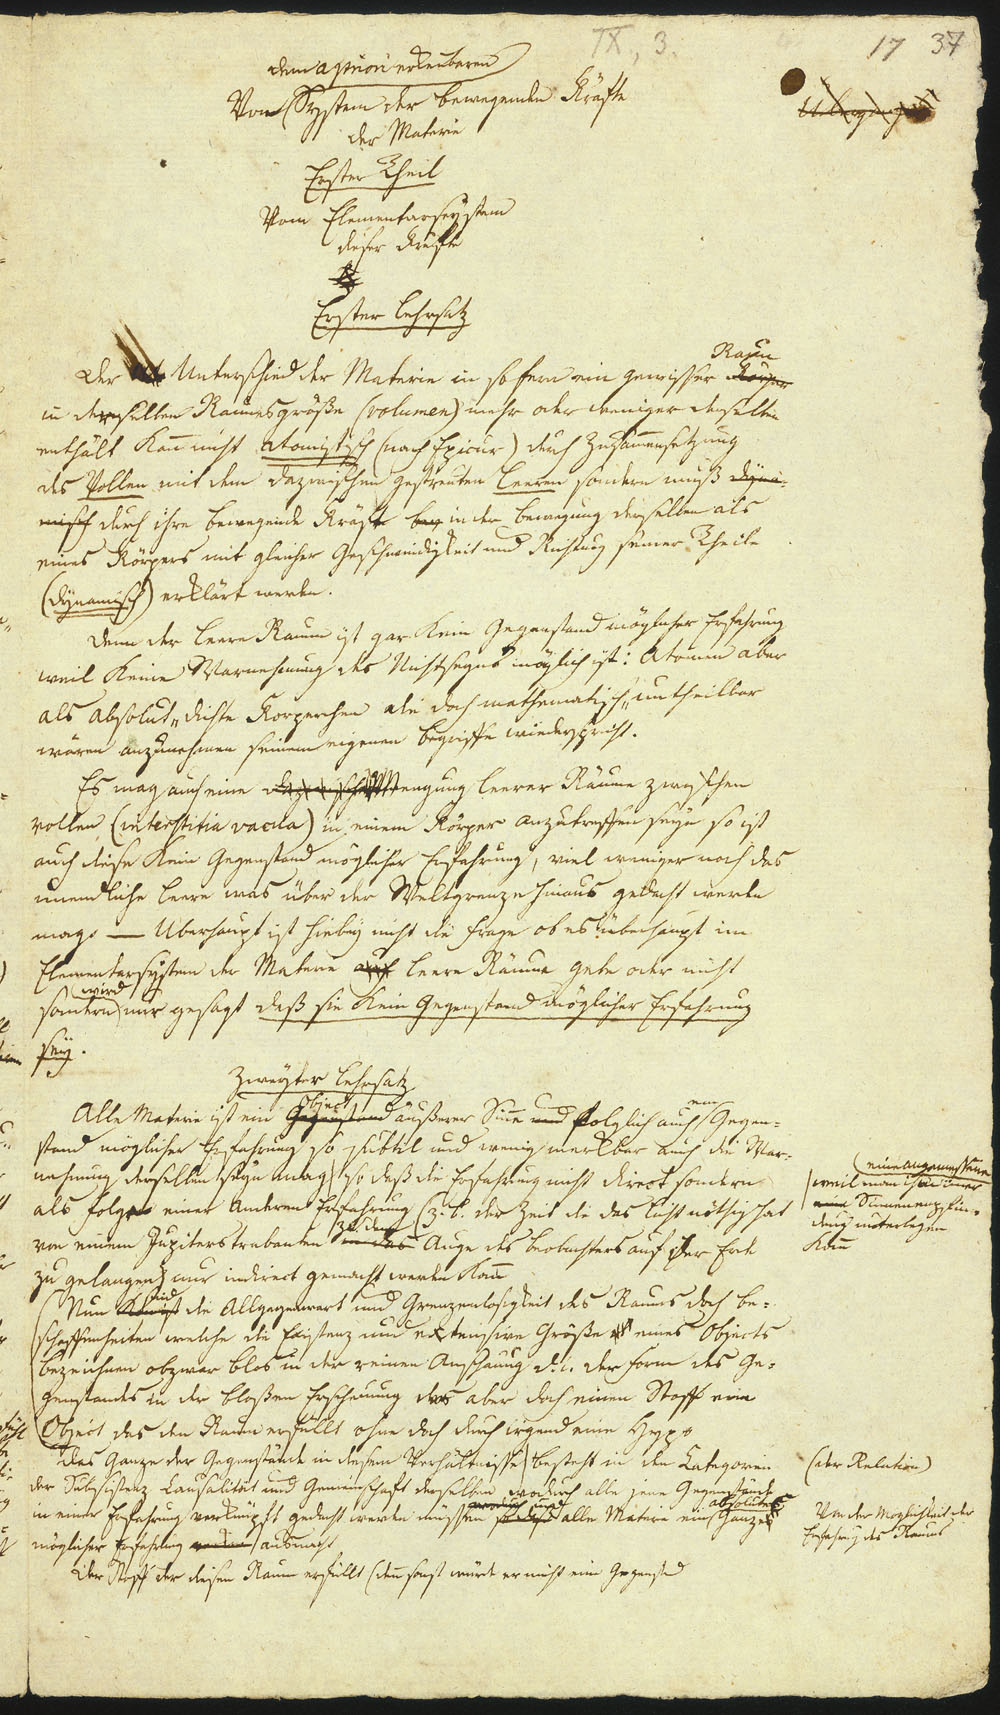 IX, 3.
17 37
dem a priori erkenbaren
Vom System der bewegenden Kräfte
der Materie
Erster Theil
Vom Elementarsystem
dieser Kräfte
Erster Lehrsatz
Raum
Der Unterschied der Materie in so fern ein gewisser Körper
in derselben Raumesgröße (volumen) mehr oder weniger derselben
enthält kan nicht atomistisch (nach Epicur) durch Zusammensetzung
des Vollen mit dem dazwischen gestreuten Leeren sondern muß dyna-
misch durch ihre bewegende Kräfte bey in der Bewegung derselben als
eines Körpers mit gleicher Geschwindigkeit und Richtung seiner Theile
(dynamisch) erklärt werden.
Denn der leere Raum ist gar kein Gegenstand möglicher Erfahrung
weil keine Warnehmung des Nichtseyns möglich ist: Atomen aber
als absolut„dichte Körperchen die doch mathematisch„untheilbar
wären anzunehmen seinem eigenen Begriffe wiederspricht.
Es mag auch eine Mengung leerer Räume zwischen
vollen (interstitia vacua) in einem Körper anzutreffen seyn so ist
auch diese kein Gegenstand möglicher Erfahrung, viel weniger noch das
unendliche Leere was über der Weltgrenze hinaus gedacht werden
mag. — Uberhaupt ist hiebey nicht die Frage ob es überhaupt im
Elementarsystem der Materie auch leere Räume gebe oder nicht
wird
sondern nur gesagt daß sie kein Gegenstand möglicher Erfahrung
sey.
Zweyter Lehrsatz
Object
Alle Materie ist ein Gegenstand äußerer Sinne und folglich auch ein Gegen-
stand möglicher Erfahrung so subtil und wenig merkbar auch die War-
nehmung derselben seyn mag so daß die Erfahrung nicht direct sondern
als Folge einer Anderen Erfahrung (z. B. der Zeit die das Licht nöthig hat
zu dem
von einem Jupiterstrabanten in das Auge des Beobachters auf der Erde
zu gelangen) nur indirect gemacht werden kann
eine angemessene
weil man ihr immer
eine Sinnenempfin-
dung unterlegen
kan
sind
Nun die Allgegenwart und Grenzenlosigkeit des Raums doch be-
schaffenheiten welche die Existenz und extensive Größe eines Objects
bezeichnen obzwar blos in der reinen Anschauung d. i. der Form des Ge-
genstandes in der bloßen Erscheinung das aber doch einen Stoff ein
Object das den Raum erfüllt ohne doch durch irgend eine Hypo
Das Ganze der Gegenstände in diesem Verhältnisse besteht in den Categorien
(der Relation)
der Subsistenz Causalität und Gemeinschaft derselben wodurch alle jene Gegenstände
in einer Erfahrung verknüpft gedacht werden müssen so daß alle Materie ein absolutes Ganze
möglicher Erfahrung ausmacht
Von der Moglichkeit der
Erfahrung des Raums
Der Stoff der diesen Raum erfüllt (denn sonst würde er nicht ein Gegenstand